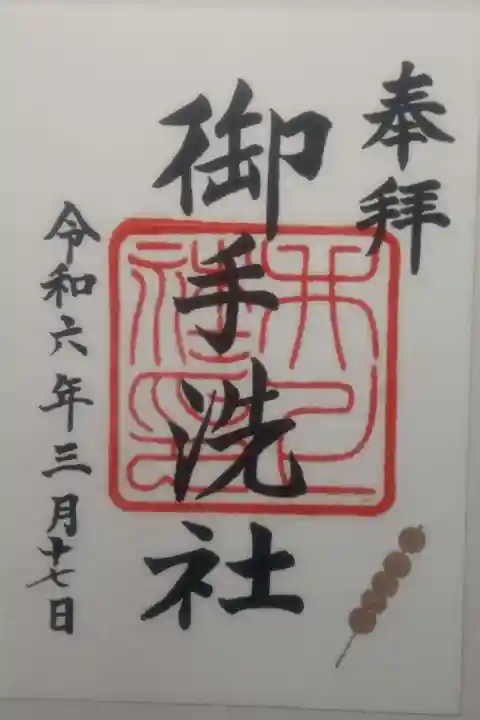 奉拝
御手洗社
令和六年三月十七日